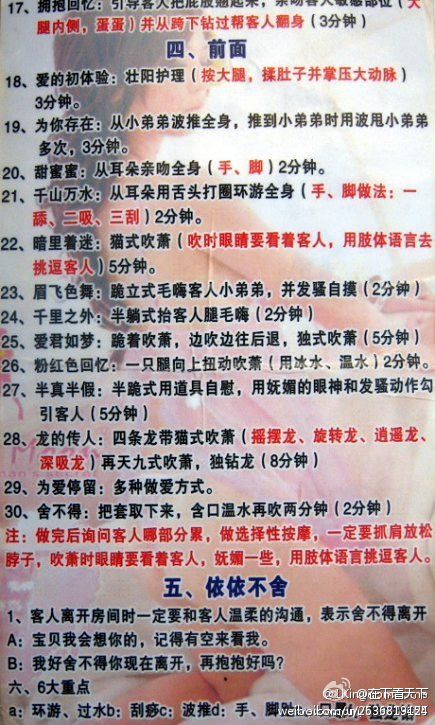 17、拥抱回忆：引导客人把屁股翘起来，亲吻客人敏感部位（大
腿内侧，蛋蛋）并从跨下钻过帮客人翻身（3分钟）
四、前面
18、爱的初体验：壮阳护理（按大腿，揉肚子并掌压大动脉）
3分钟。
19、为你存在：从小弟弟波推全身，推到小弟弟时用波甩小弟弟
多次，3分钟。
20、甜蜜蜜：从耳朵亲吻全身（手、脚）2分钟。
21、千山万水：从耳朵用舌头打圈环游全身（手、脚做法：一
舔、二吸、三刮）2分钟）
22、暗里着迷：猫式吹萧（吹时眼睛要看着客人，用肢体语言去
挑逗客人）5分钟。
23、眉飞色舞：跪立式毛嗨客人小弟弟，并发骚自摸（2分钟）
24、千里之外：半躺式抬客人腿毛嗨（2分钟）
25、爱君如梦：跪着吹萧，边吹边往后退，独式吹萧（5分钟）
26、粉红色回忆：一只腿向上扭动吹萧（用冰水、温水）2分钟。
27、半真半假：半跪式用道具自慰，用妩媚的眼神和发骚动作勾
引客人（5分钟）
28、龙的传人：四条龙带猫式吹萧（摇摆龙、旋转龙、逍遥龙、
深吸龙）再天九式吹萧，独钻龙（8分钟）
29、为爱停留：多种做爱方式。
30、舍不得：把套取下来，含口温水再吹两分钟（2分钟）
注：做完后询问客人哪部分累，做选择性按摩，一定要抓肩放松
脖子，吹萧时眼睛要看着客人，妩媚一些，用肢体语言挑逗客人。
五、依依不舍
1、客人离开房间时一定要和客人温柔的沟通，表示舍不得离开
A：宝贝我会想你的，记得有空来看我。
B：我好舍不得你现在离开，再抱抱好吗？
六、6大重点
a：环游、过水b：刮痧c：波推d：手、脚
@在下看天下